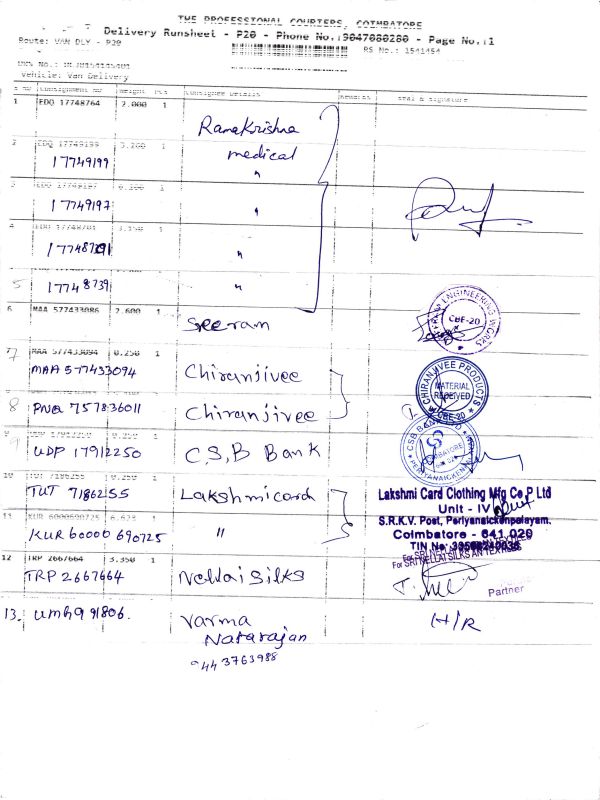 THE PROFESSIONAL COURIERS, COIMBATORE
Delivery Runsheet - P20 - Phone No.:9047080280 - Page No.:1
Route: VAN DLY - P20
RS No.: 1541454
Vehicle: Van Delivery
Consignment No Weight Pcs Consignee Details Remarks Seal & Signature
1 EDQ 17748764 2.000 1 Ramakrishna
medical
2 EDQ 17749199 3.200 1
17749199 "
3 EDQ 17749197 1
17749197 "
4
"
5 17748739 "
6 MAA 577433086 2.600 1 Sreeram
ENGINEERING WORKS
CBE-20
7 MAA 577433094 0.250 1
MAA 577433094 Chiranjivee
CHIRANJIVEE PRODUCTS
MATERIAL
RECEIVED
CBE-20
8 PNQ 757836011 Chiranjivee
UDP 17912250 C.S.B Bank
CSB BANK
COIMBATORE
10 TUT 7186255 0.250 1
TUT 7186255 Lakshmicard
Lakshmi Card Clothing Mfg Co P Ltd
Unit - IV
S.R.K.V. Post, Periyanaickenpalayam.
Coimbatore - 641 020
TIN No:
11 KUR 6000690725 1
KUR 60000 690725 "
12 TRP 2667664 3.350 1
TRP 2667664 Nellai Silks
For SRI NELLAI SILKS AN TEXTILES
Partner
13. Varma
Natarajan
H/R